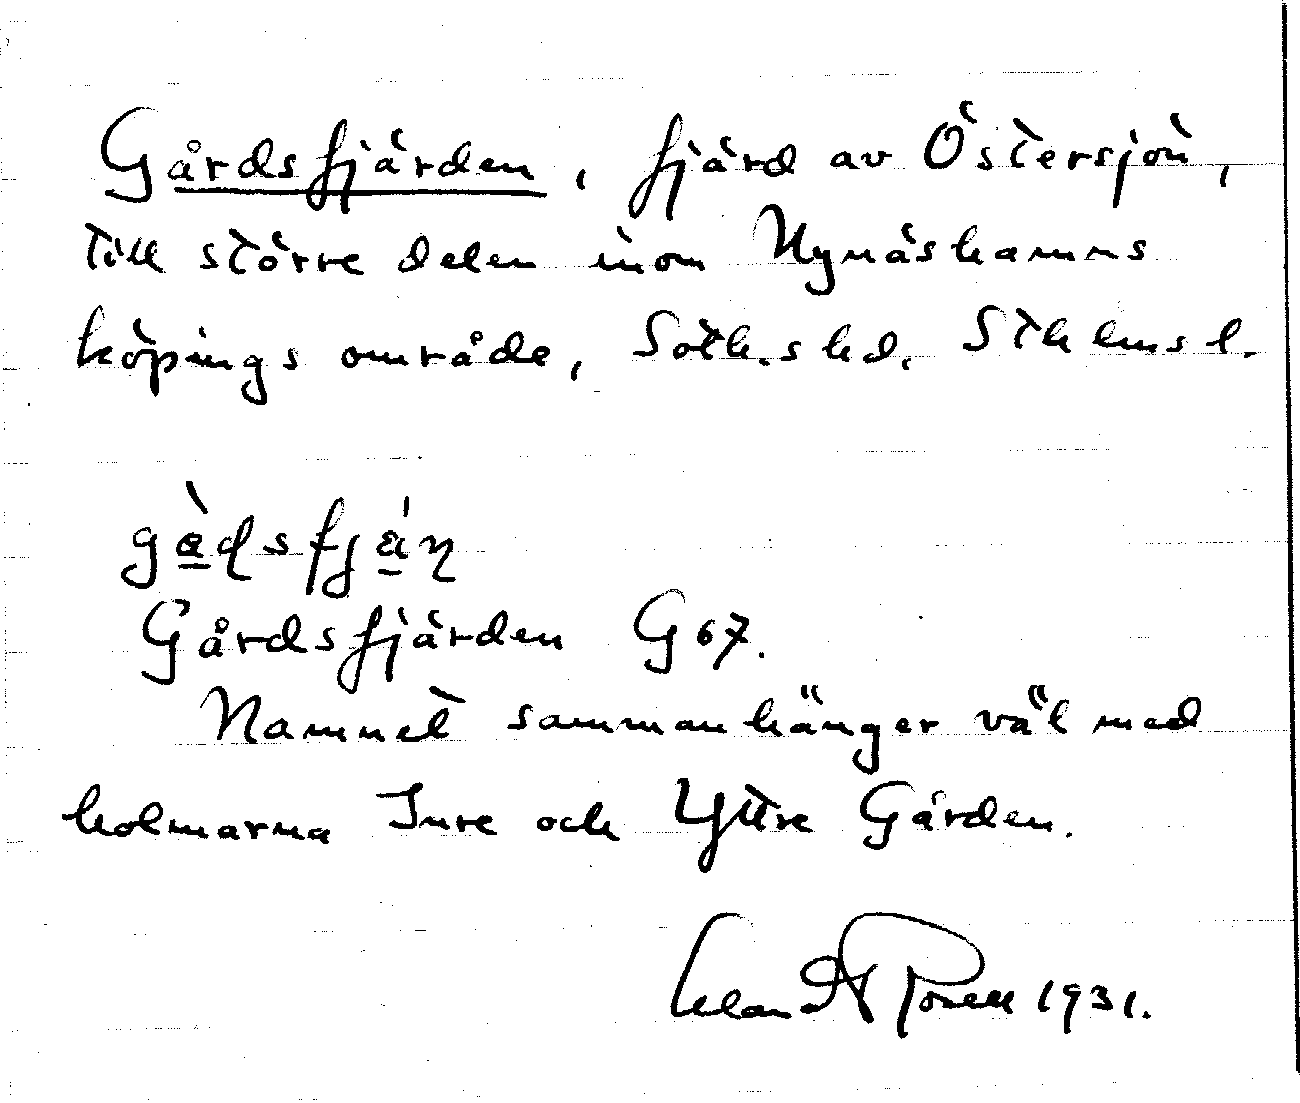 Gårdsfjärden, fjärd av Östersjön,
till större delen inom Nynäshamns
köpings område, Soth.s hd. Sthlms l.
gådsfjän
Gårdsfjärden G 67.
Namnet sammanhänger väl med
holmarna Inre och Yttre Gården.
1931.